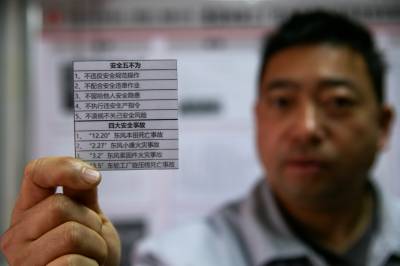 安全五不为
1、不违反安全规范操作
2、不配合安全违章作业
3、不留给他人安全隐患
4、不执行违安生产指令
5、不漠视不关己安全风险
四大安全事故
1、"12.20"东风本田死亡事故
2、"2.27"东风小康火灾事故
3、"3.2"东风紧固件火灾事故
3.5"车轮工厂旋压线死亡事故